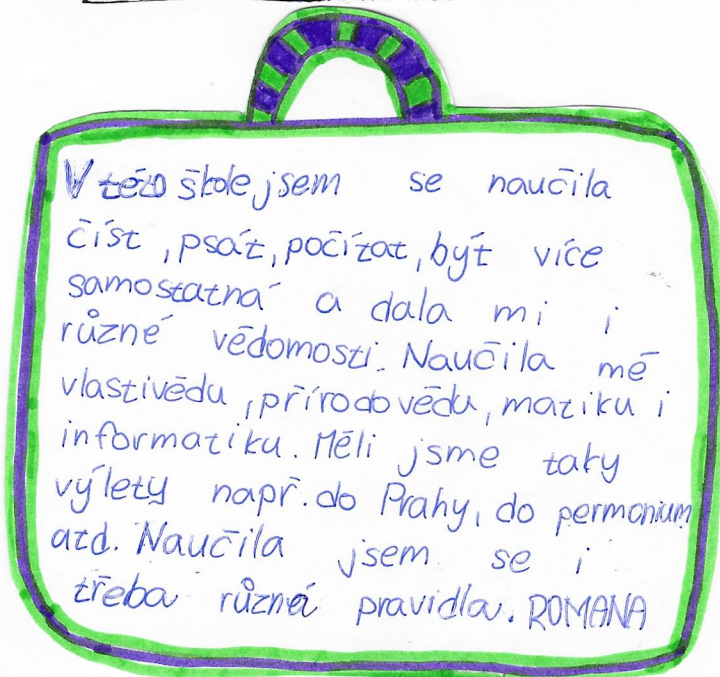 V této škole jsem se naučila
číst, psát, počítat, být více
samostatná a dala mi i
různé vědomosti. Naučila mě
vlastivědu, přírodovědu, matiku i
informatiku. Měli jsme taky
výlety např. do Prahy, do permonium
atd. Naučila jsem se i
třeba různá pravidla. ROMANA